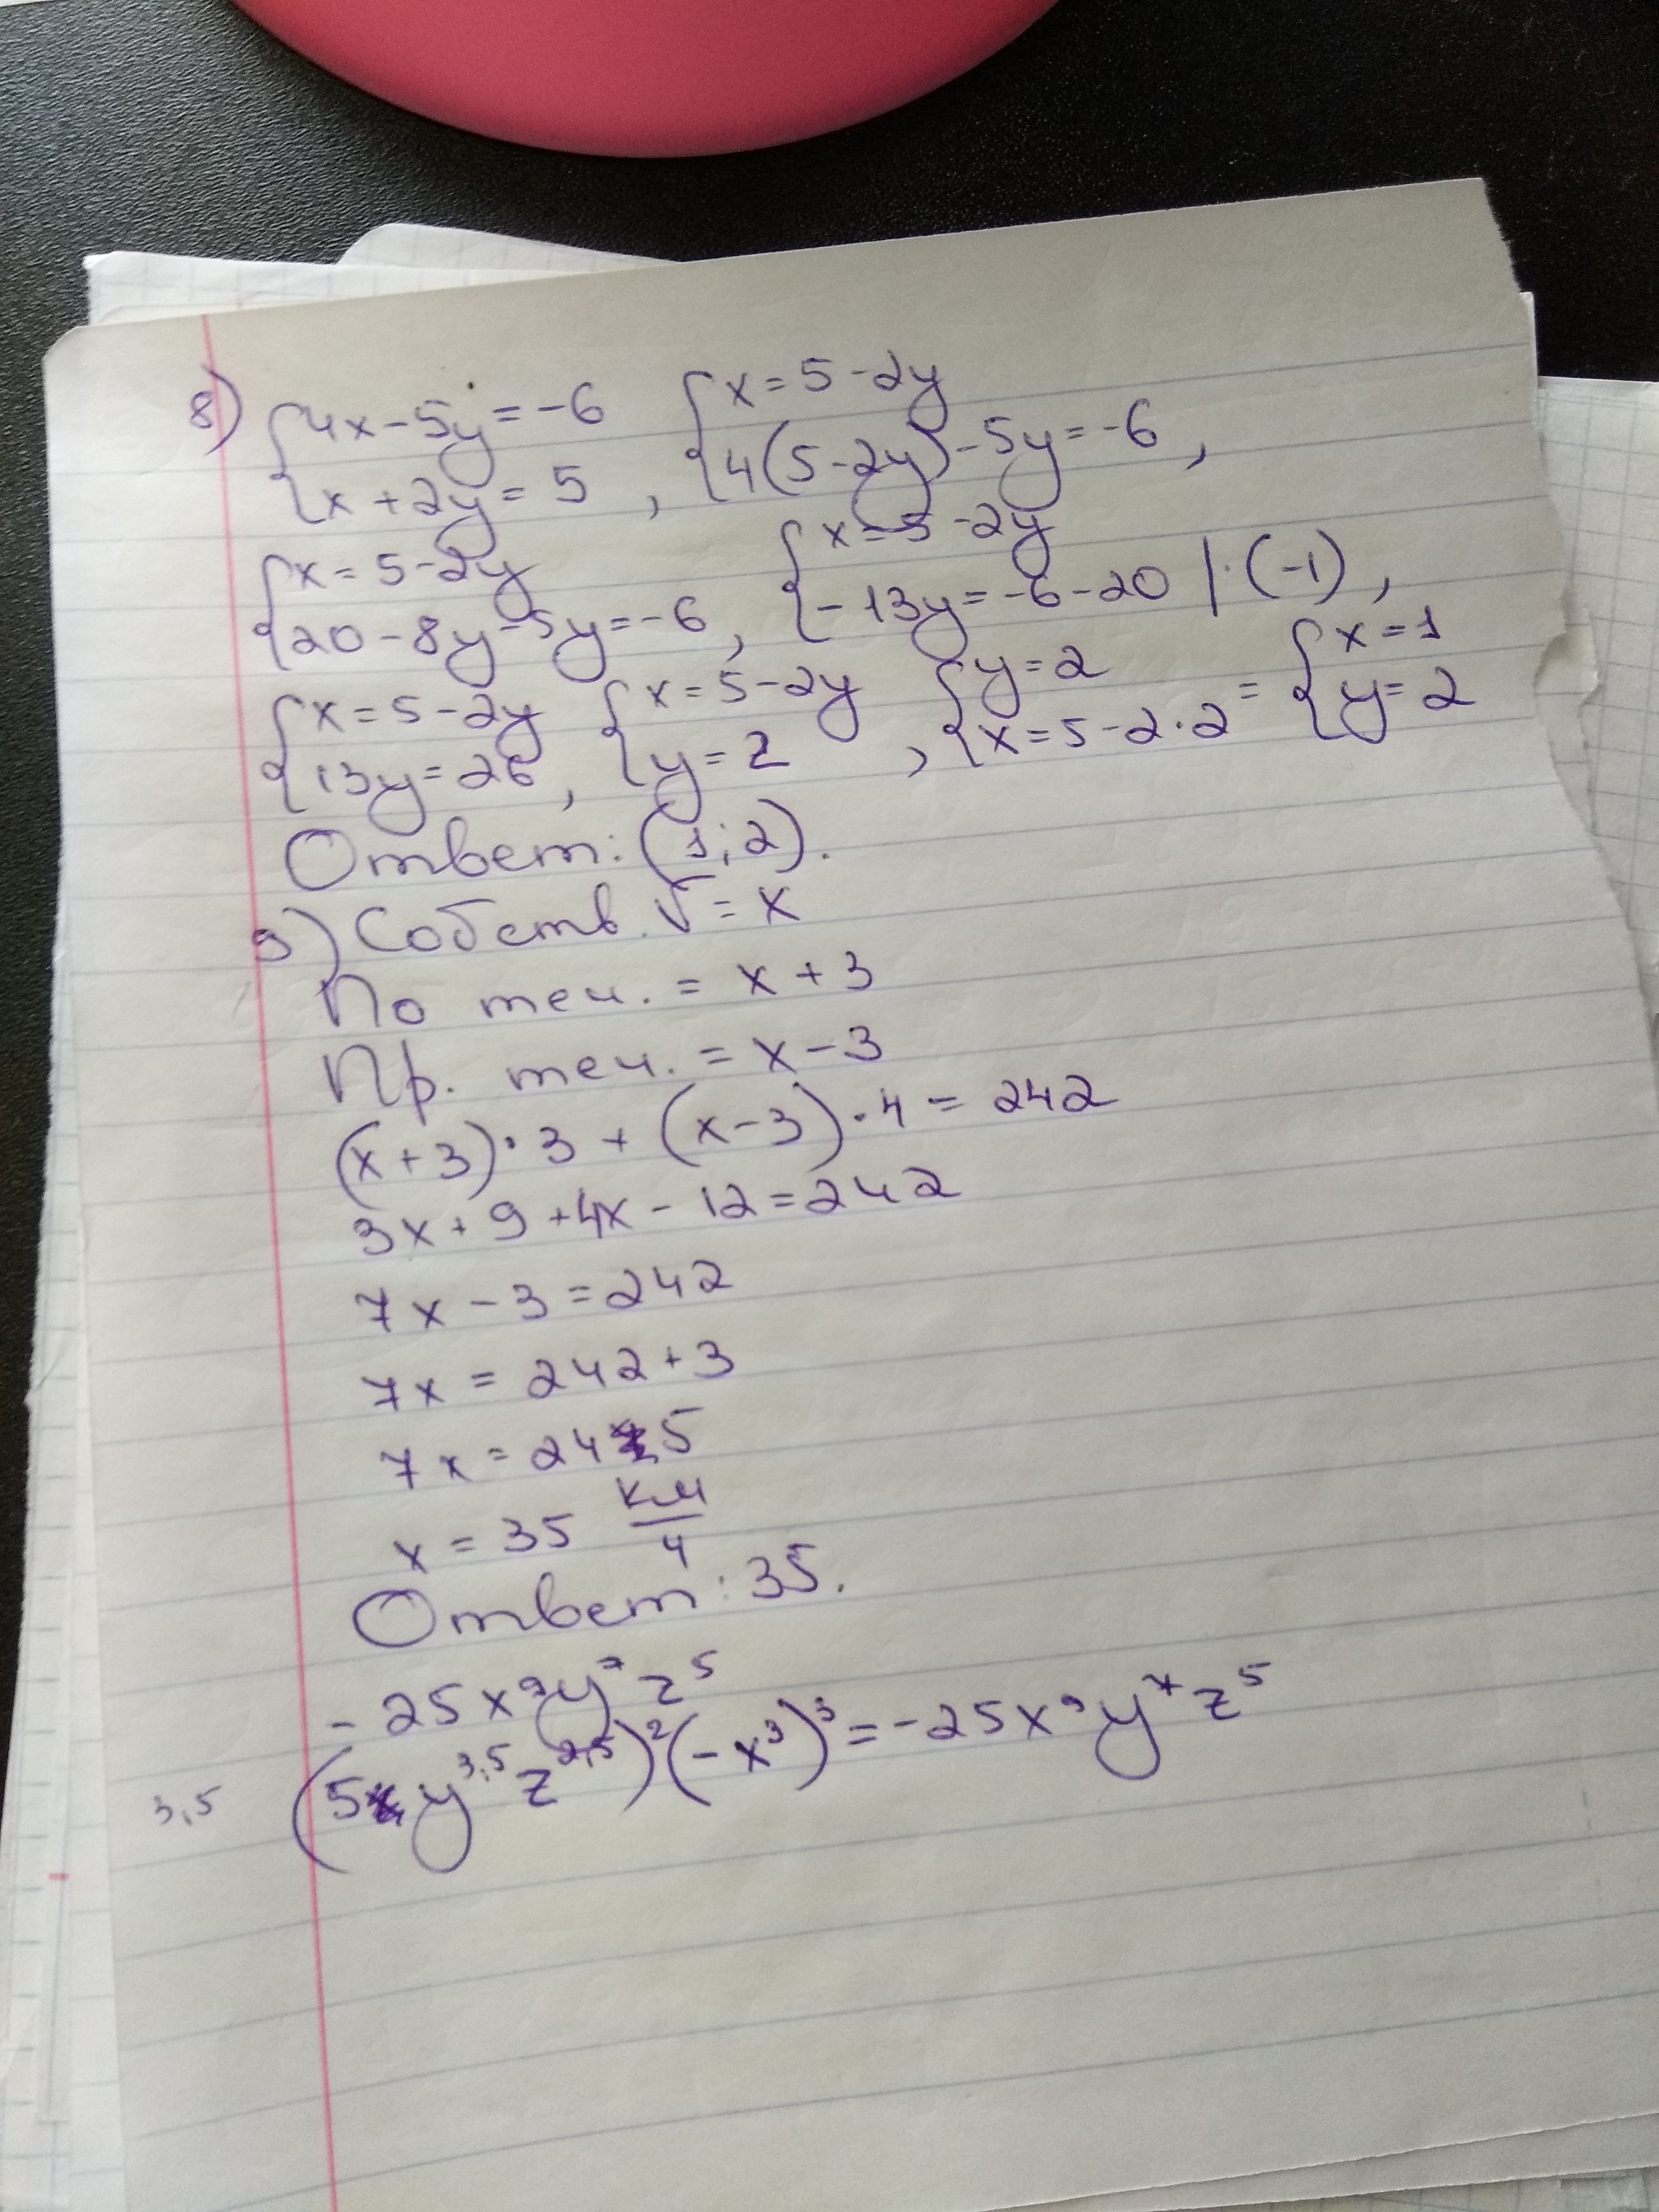 8) {4x-5y=-6 {x=5-2y
{x+2y=5 , {4(5-2y)-5y=-6 ,
{x=5-2y {x=5-2y
{20-8y-5y=-6, {-13y=-6-20 |·(-1) ,
{x=5-2y {x=5-2y {y=2 {x=1
{13y=26 , {y=2 , {x=5-2·2 = {y=2
Ответ: (1;2).
9) Собств. V = x
По теч. = x+3
Пр. теч. = x-3
(x+3)·3+(x-3)·4=242
3x+9+4x-12=242
7x-3=242
7x=242+3
7x=245
x=35 км/ч
Ответ: 35.
-25x⁹y⁷z⁵
3,5 (5y^3,5 z^2,5)²(-x³)³=-25x⁹y⁷z⁵